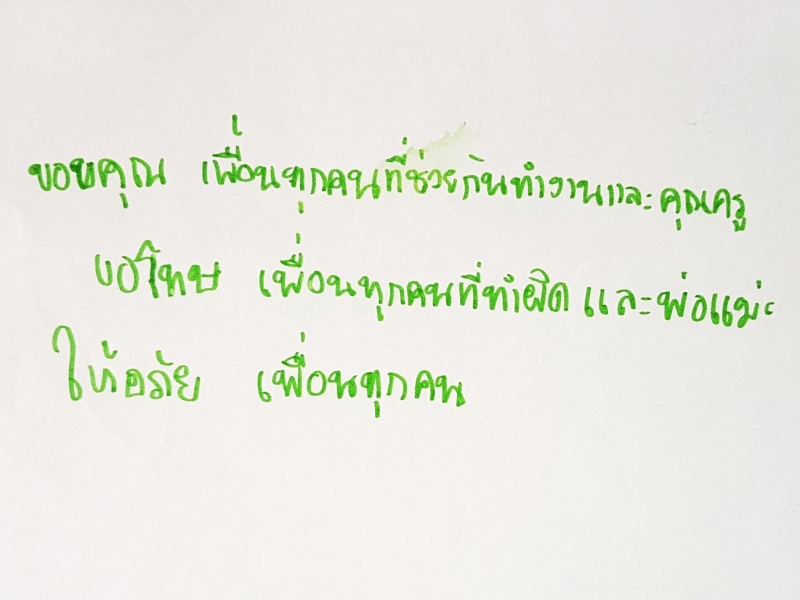 ขอบคุณ เพื่อนทุกคนที่ช่วยกันทำงานและคุณครู
ขอโทษ เพื่อนทุกคนที่ทำผิด และพ่อแม่
ให้อภัย เพื่อนทุกคน